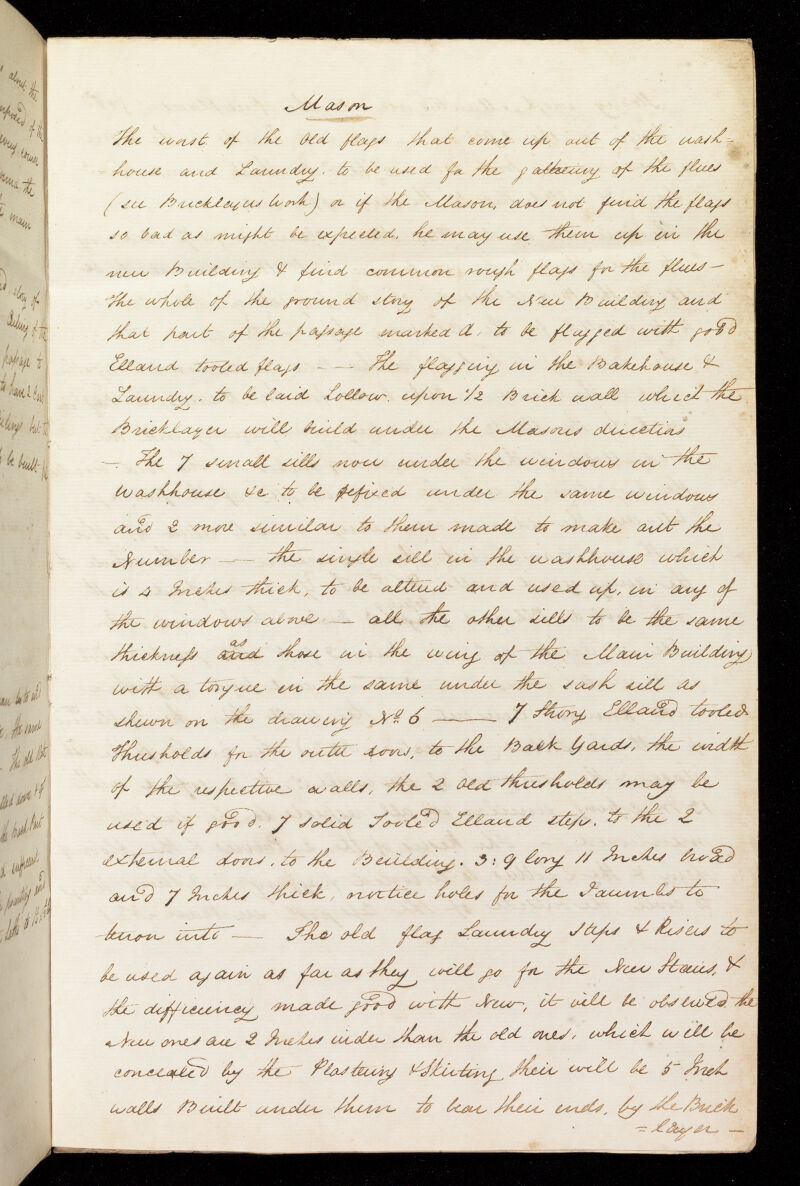 Mason
The worst of the old flags that come up out of the wash-
house and Laundry. to be used for the gathering of the flues
(see Bricklayers Work) or if the Mason, does not find the flags
so bad as might be expected, he may use them up in the
new Building & find common rough flags for the flues —
the whole of the ground story of the New Building and
that part of the passage marked d. to be flagged with good
Elland tooled flags — — The flagging in the Bakehouse &
Laundry. to be laid hollow. upon 1/2 Brick wall which the
Bricklayer will build under the Masons directions
— The 7 small sills now under the windows in the
washhouse &c to be refixed under the same windows
and 2 more similar to them made to make out the
Number — the single sill in the washhouse which
is 4 Inches thick, to be altered and used up, in any of
the windows above — all the other sills to be the same
thickness and as those in the wing of the Main Building
with a tongue in the same under the sash sill as
shewn on the drawing No. 6 —— 7 Strong Elland tooled
thresholds for the outer doors, to the Back Yards, the width
of the respective walls, the 2 old thresholds may be
used if good. 7 solid Tooled Elland steps. to the 2
external doors, to the Building. 3:9 long 11 Inches broad
and 7 Inches thick, mortice holes for the Jaumbs to
tenon into — The old flag Laundry Steps & Risers to
be used again as far as they will go for the New Stairs, &
the difficiency made good with New, it will be observed the
New ones are 2 Inches wider than the old ones, which will be
concealed by the Plastering & Skirting their will be 5 Inch
walls Built under them to bear their ends, by the Brick
= layer —